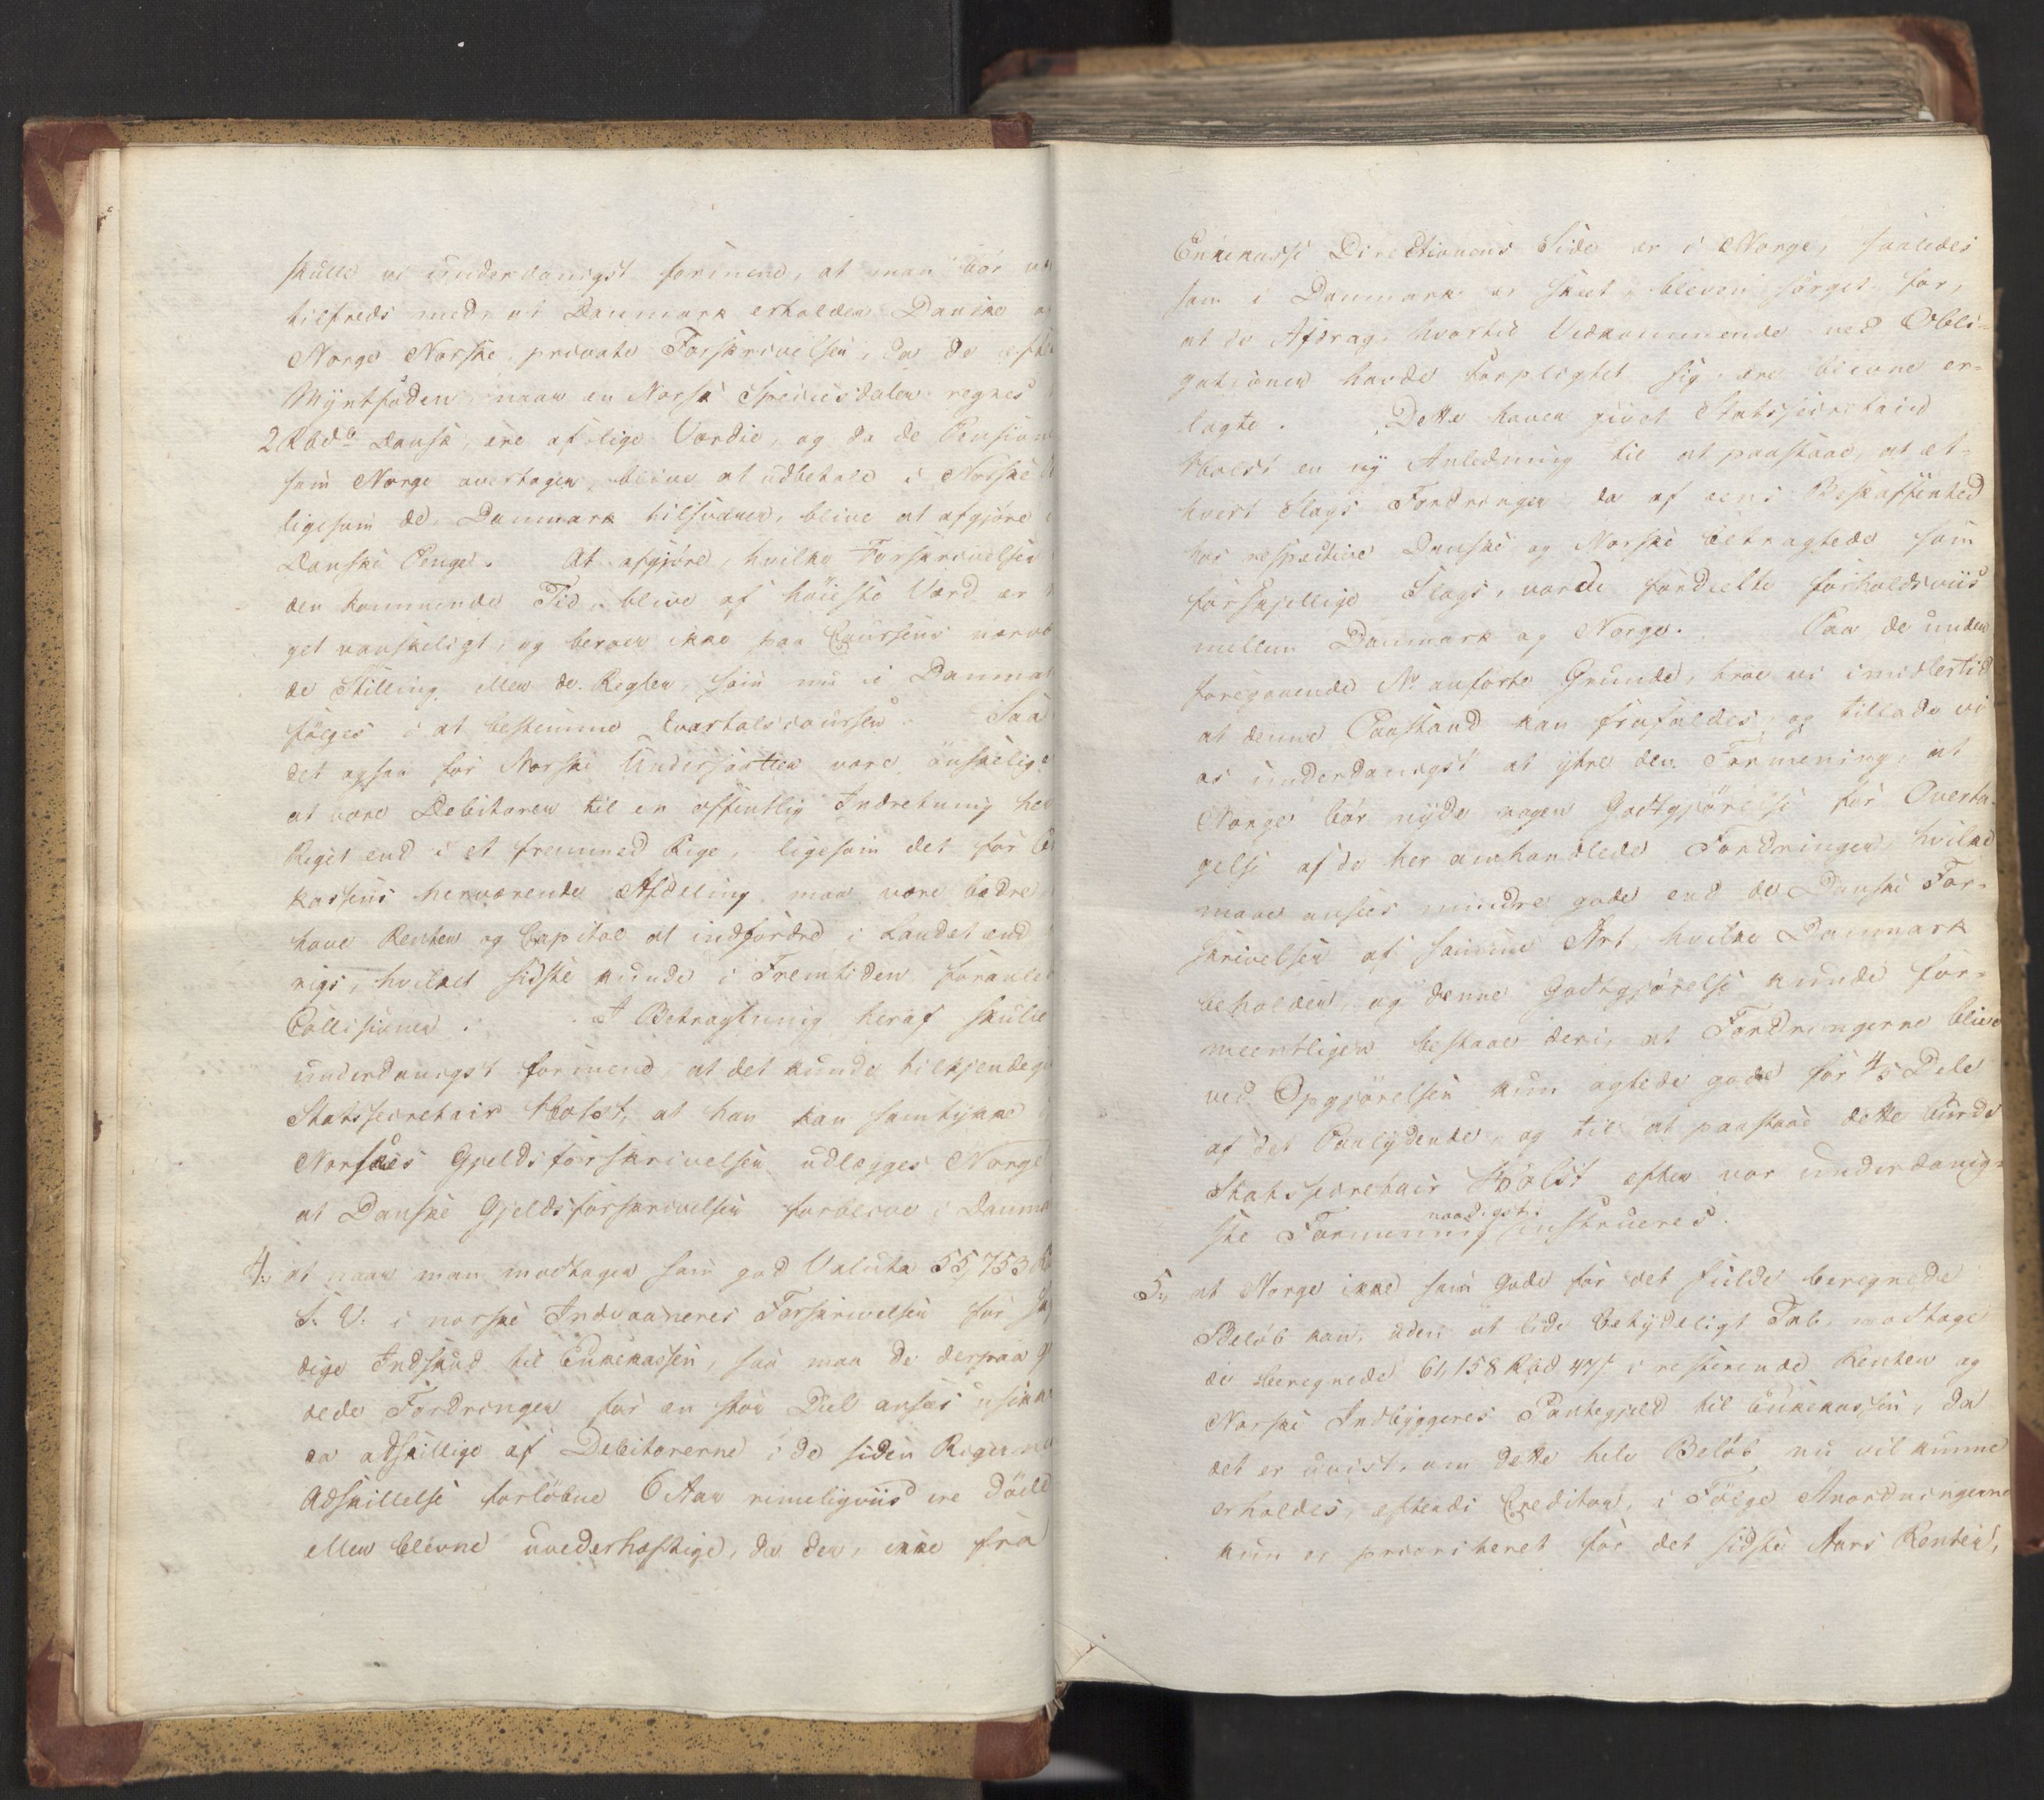 skulle vi underdanigst formene, at man bör
tilfreds med, at Danmark erholder Danske
Norge Norske private Forskrivelser, da de efter
Myntfoden, naar en Norsk Speciesdaler regnes
2 Rbdr Dansk, ere af lige Værdie, og da de Pension
som Norge overtager, blive at udbetale i Norske
ligesom de, Danmark tilsvarer, blive at afgjöre
Danske Penge. At afgjöre, hvilke Forskrivelser
den kommende Tid, blive af höieste Værd er
get vanskeligt, og beroer ikke paa Coursens nærvæ
de Stilling eller de Regler, som nu i Danmar
fölges i at bestemme Qvartalscoursen. Saa
det ogsaa for Norske Undersaatter være önskelige
at være Debitorer til en offentlig Indretning her
Riget end i et fremmed Rige, ligesom det for
kassens herværende Afdeling maa være bedre,
have Renter og Capital at indfordre i Landet end
rigs, hvilket sidste kunde i Fremtiden foranled
Collisioner. I Betragtning heraf skulle
underdanigst formene, at det kunde tilkjendegi
Statssecretair Holst, at han kan samtykke
Norskes Gjeldsforskrivelser udlægges Norge
at Danske Gjeldsforskrivelser forblive i Danma
4, at naar man modtager som god Valuta 55,753
S. V. i norske Indvaaneres Forskrivelser for
dige Indskud til Enkekassen, saa maa de derpaa
dede Fordringer for en stor Deel ansees usikk
da adskillige af Debitorerne i de siden Rigerne
Adskillelse forlöbne 6 Aar rimeligviis ere döde
eller blevne uvederhæftige, da der, ikke fra
Enkekasse Directionens Side er i Norge, saaledes
som i Danmark er skeet, bleven sörget for,
at de Afdrag, hvortil Vedkommende ved Obli-
gationer havde forpligtet sig, ere blevne er-
lagte. Dette haver givet Statssecretaire
Holst en ny Anledning til at paastaae, at et-
hvert Slags Fordringer, da af deres Beskaffenhed
hos respective Danske og Norske betragtede som
forskjellige Slags, vorde fordeelte forholdsviis
mellem Danmark og Norge. Paa de under
foregaaende No anförte Grunde, troe vi imidlertid
at denne Paastand kan frafaldes, og tillade vi
os underdanigst at yttre den Formening, at
Norge bör nyde nogen Godtgjörelse for Overta-
gelse af de her omhandlede Fordringer, hvilke
maae ansees mindre gode end de Danske For-
skrivelser af samme Art, hvilke Danmark
beholder, og denne Godtgjörelse kunde for-
meentligen bestaae deri, at Fordringerne blive
ved Opgjörelsen kun agtede gode for 4/5 Dele
af det Paalydende, og til at paastaae dette burde
Statssecretair Holst efter vor underdanig-
ste Formening naadigst instrueres.
5, at Norge ikke som gode for det fulde beregnede
Belöb kan, uden at lide betydeligt Tab, modtage
de beregnede 61,158 Rbd 47 s i resterende Renter og
Norske Indbyggeres Pantegjeld til Enkekassen, da
det er uvist, om dette hele Belöb nu vil kunne
erholdes, efterdi Creditor, i Fölge Anordningerne
kun er prioriteret for det sidste Aars Renter,